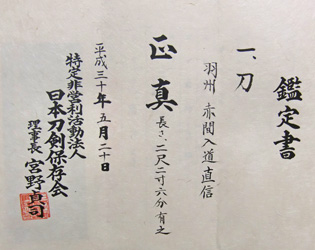 鑑定書
一、刀
羽州 赤間入道直信
正真
長さ、二尺二寸六分有之
平成三十年五月二十日
特定非営利活動法人
日本刀剣保存会
理事長 宮野貞司